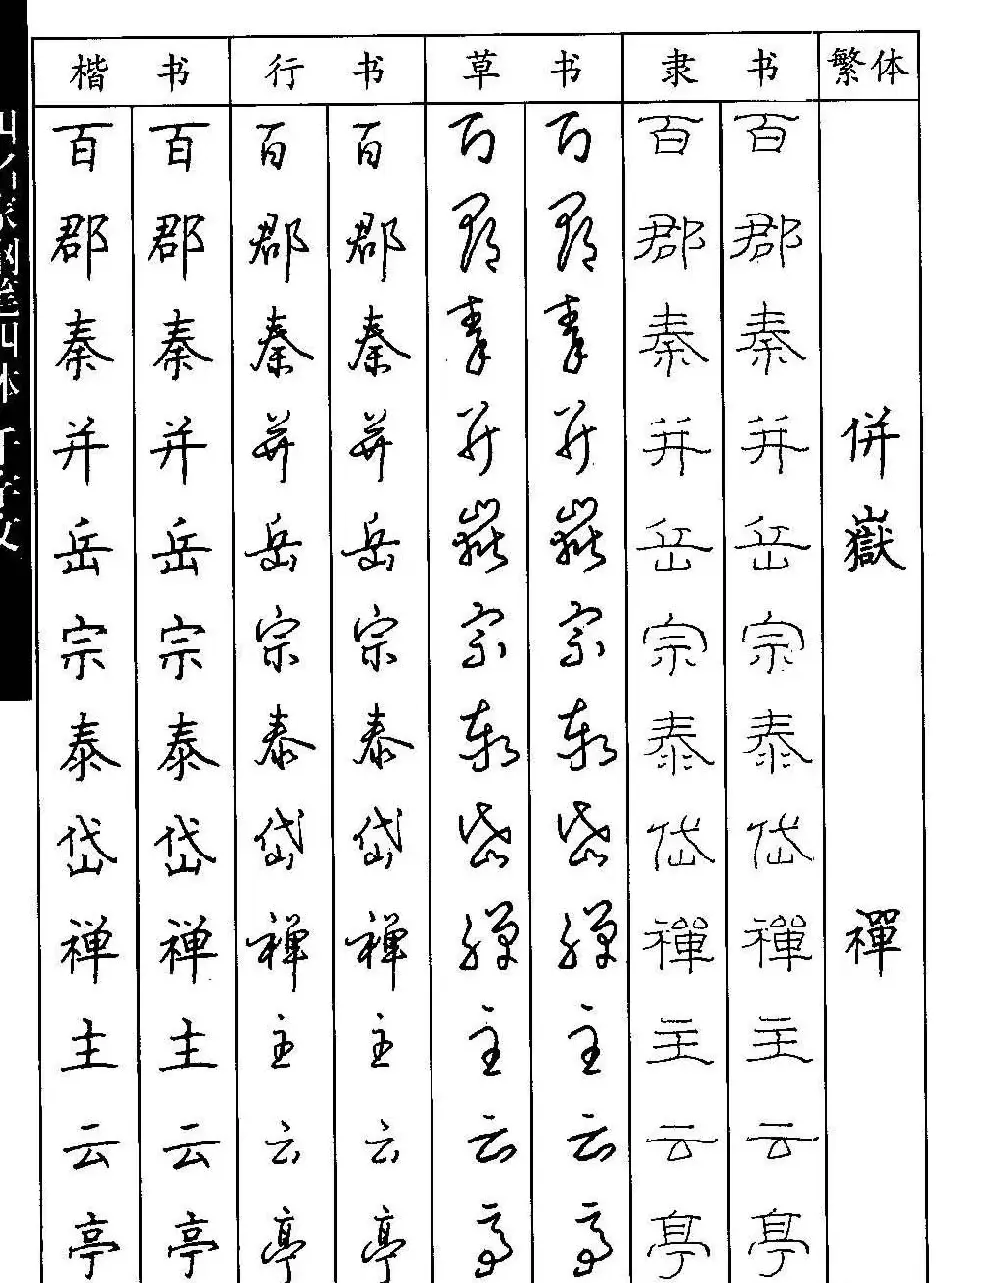 楷书 行书 草书 隶书 繁体
百 百 百 百 百 百 百 百
郡 郡 郡 郡 郡 郡 郡 郡
秦 秦 秦 秦 秦 秦 秦 秦
并 并 并 并 并 并 并 并 併
岳 岳 岳 岳 嶽 嶽 岳 岳 嶽
宗 宗 宗 宗 宗 宗 宗 宗
泰 泰 泰 泰 泰 泰 泰 泰
岱 岱 岱 岱 岱 岱 岱 岱
禅 禅 禅 禅 禅 禅 禪 禪 禪
主 主 主 主 主 主 主 主
云 云 云 云 云 云 云 云
亭 亭 亭 亭 亭 亭 亭 亭
四名家钢笔四体千字文